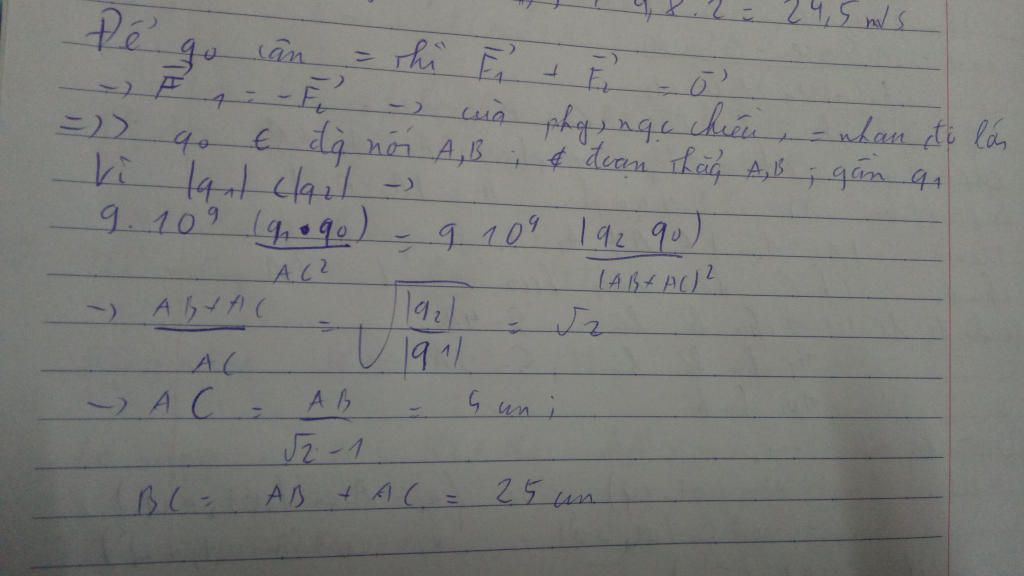 9,8.2 = 24,5 m/s
Để q0 cân = thì F1 + F2 = 0
→ F1 = -F2 → cùa phg, ngc chiều, = nhau độ lớn
=>> q0 ∈ đg nối A,B ; ∉ đoạn thẳg A,B ; gần q1
Vì |q1| < |q2| →
9.10^9 (q1.q0) / AC² = 9 10^9 |q2 q0) / (AB+AC)²
→ AB+AC / AC = √|q2| / |q1| = √2
→ AC = AB / √2 - 1 = 5 cm ;
BC = AB + AC = 25 cm